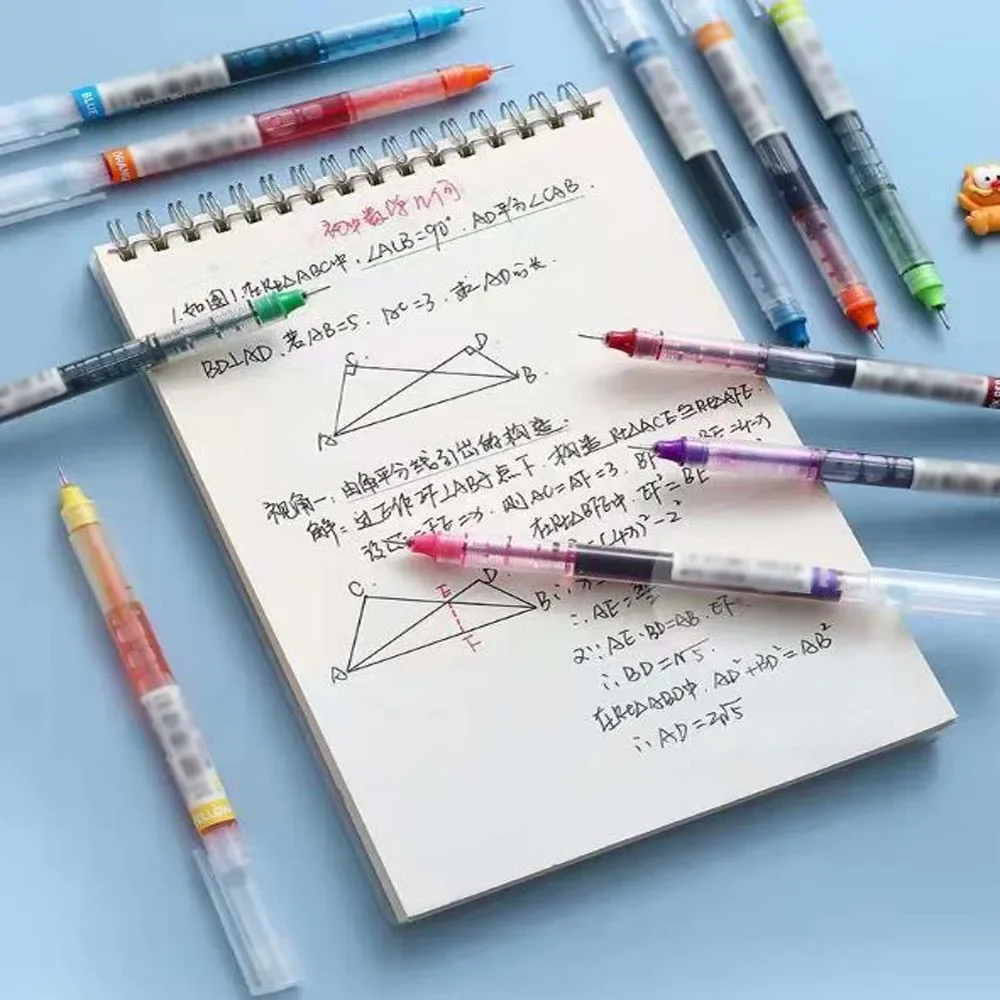 BLUE
ORANG
初中数学几何
1.如图1,在Rt△ABC中,∠ACB=90°,AD平分∠CAB.
BD⊥AD,若AB=5,AC=3,求AD的长.
C
D
B
A
视角一:由角平分线引出的构造.
解:过E作EF⊥AB于点F,构造Rt△ACE≌Rt△AFE.
=FE=x,则AC=AF=3, BE=4-x
在Rt△BFE中,EF²=BE
(4-x)²-2²
C
D
E
B
F
A
∴AE=
∵AE·BD=AB·EF
∴BD=√5.
在Rt△ABD中,AD²+BD²=AB²
∴AD=2√5
LLOW